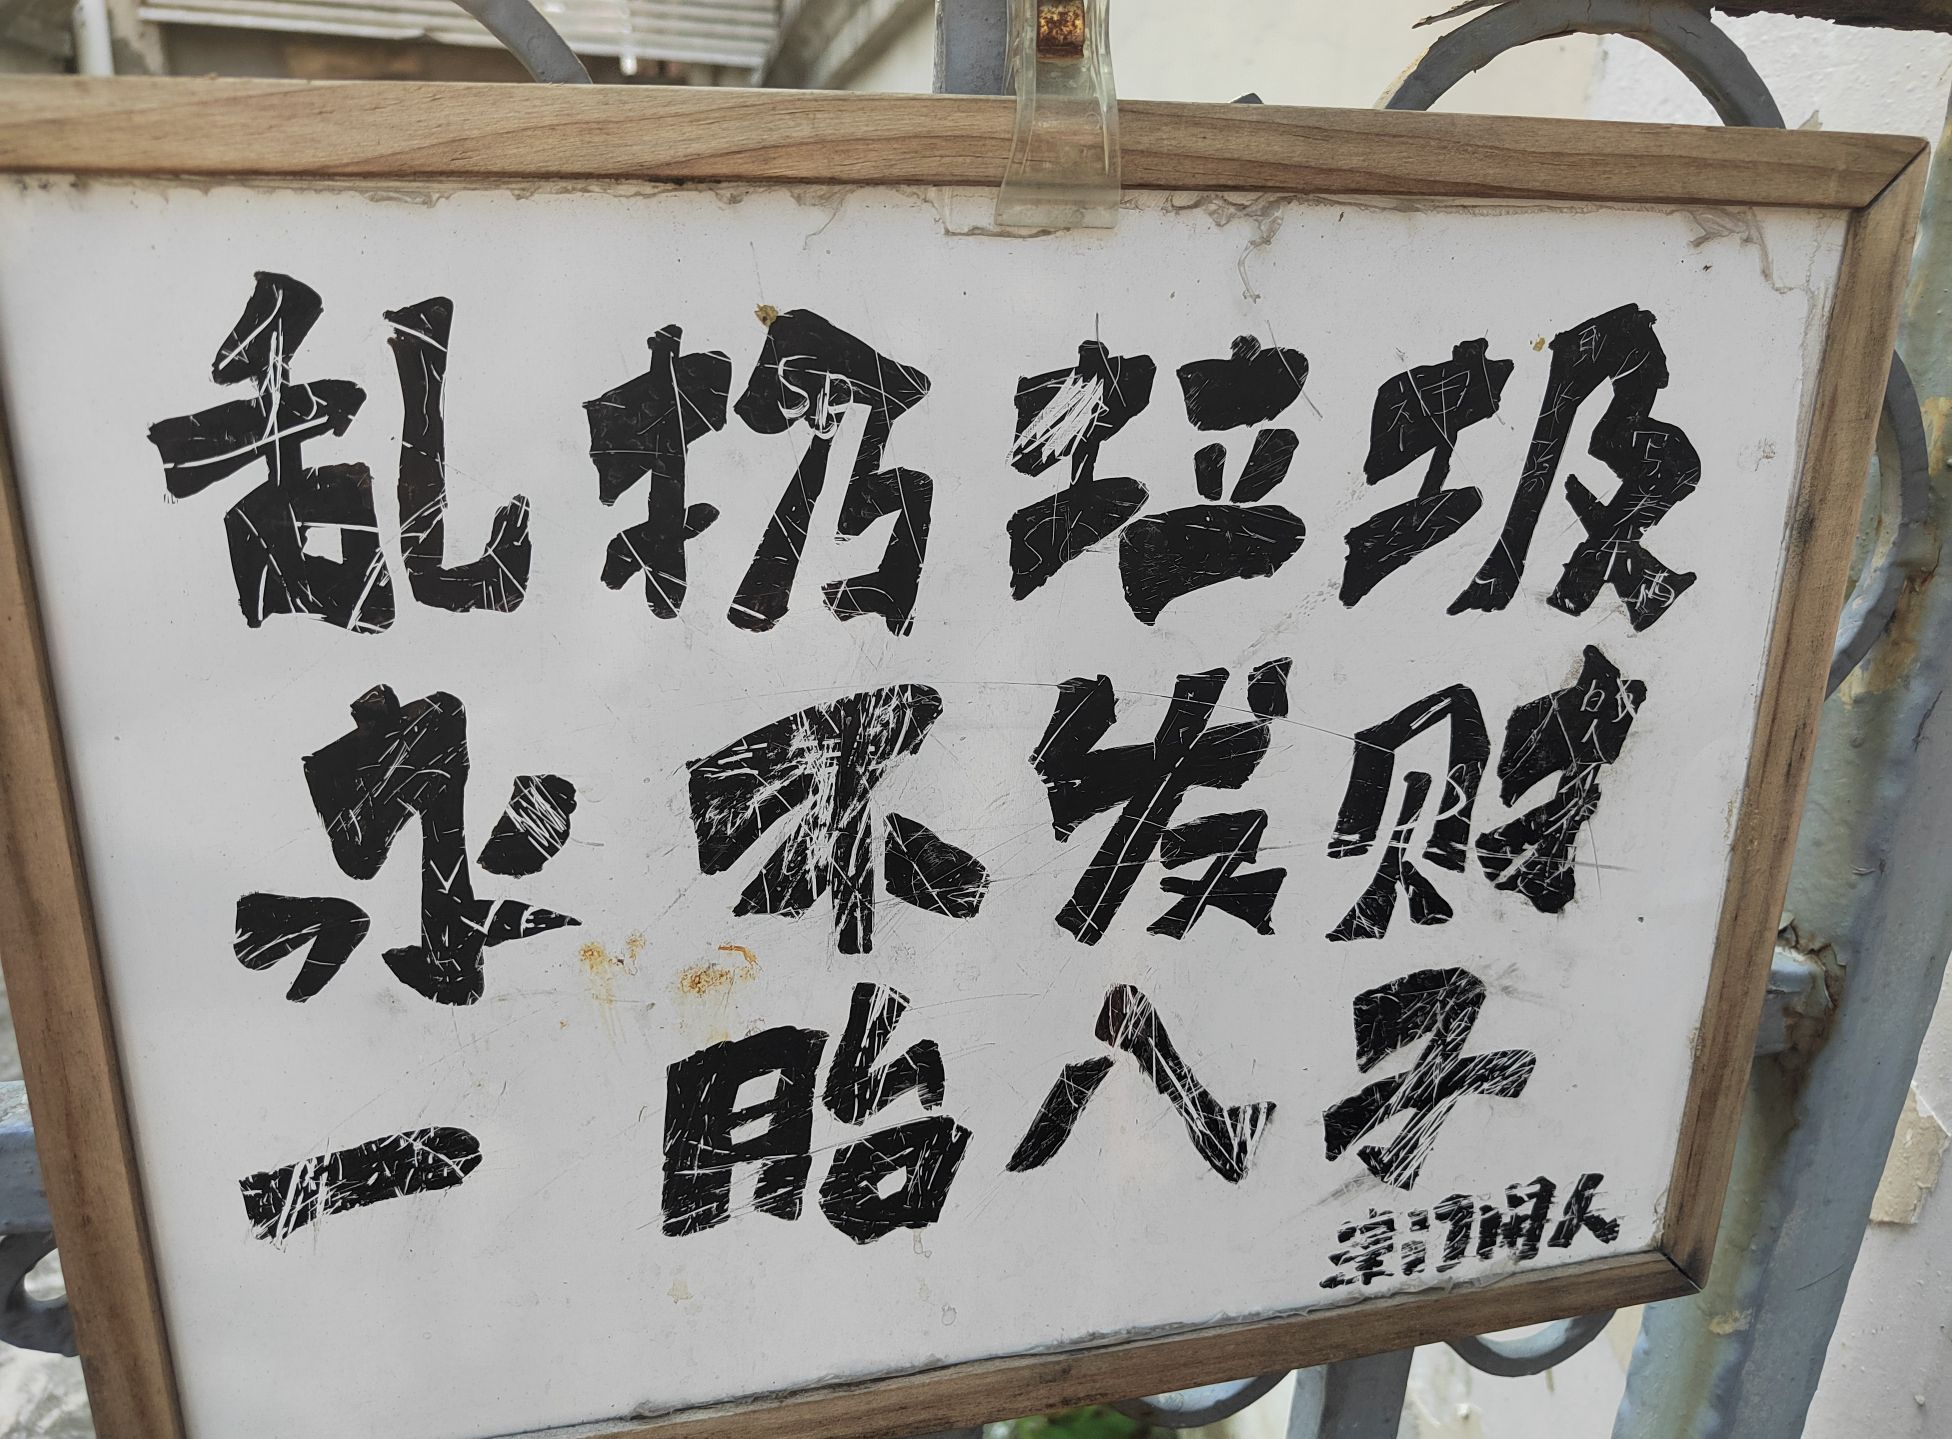 乱扔垃圾
永不发财
一胎八子